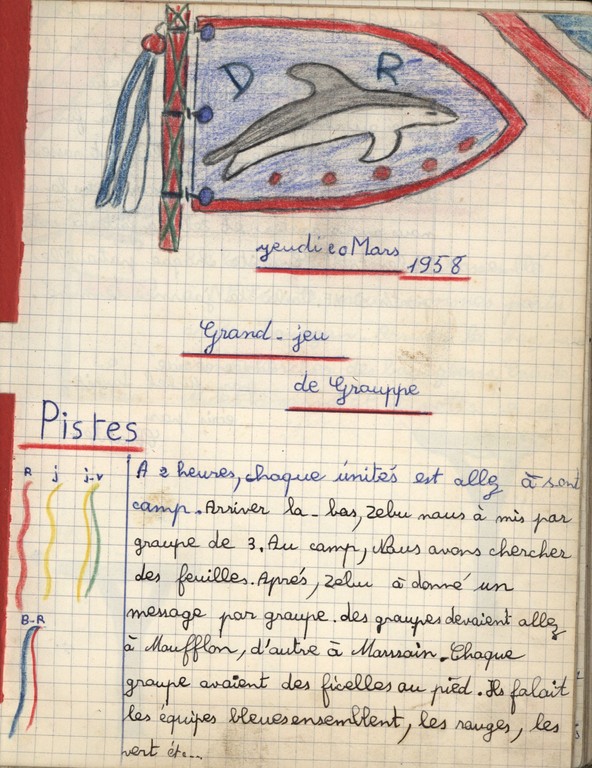 D R
jeudi 20 Mars 1958
Grand-jeu
de Grouppe
Pistes
R j j-v
B-R
A 2 heures, chaque únités est allez à sont
camp. Arriver la-bas, Zebu nous à mis par
groupe de 3. Au camp, Nous avons chercher
des feuilles. Aprés, Zebu à donné un
message par groupe. des groupes devaient allez
à Moufflon, d'autre à Marssain. Chaque
groupe avaient des ficelles au pied. Ils falait
les équipes bleues ensemblent, les rouges, les
vert étc...